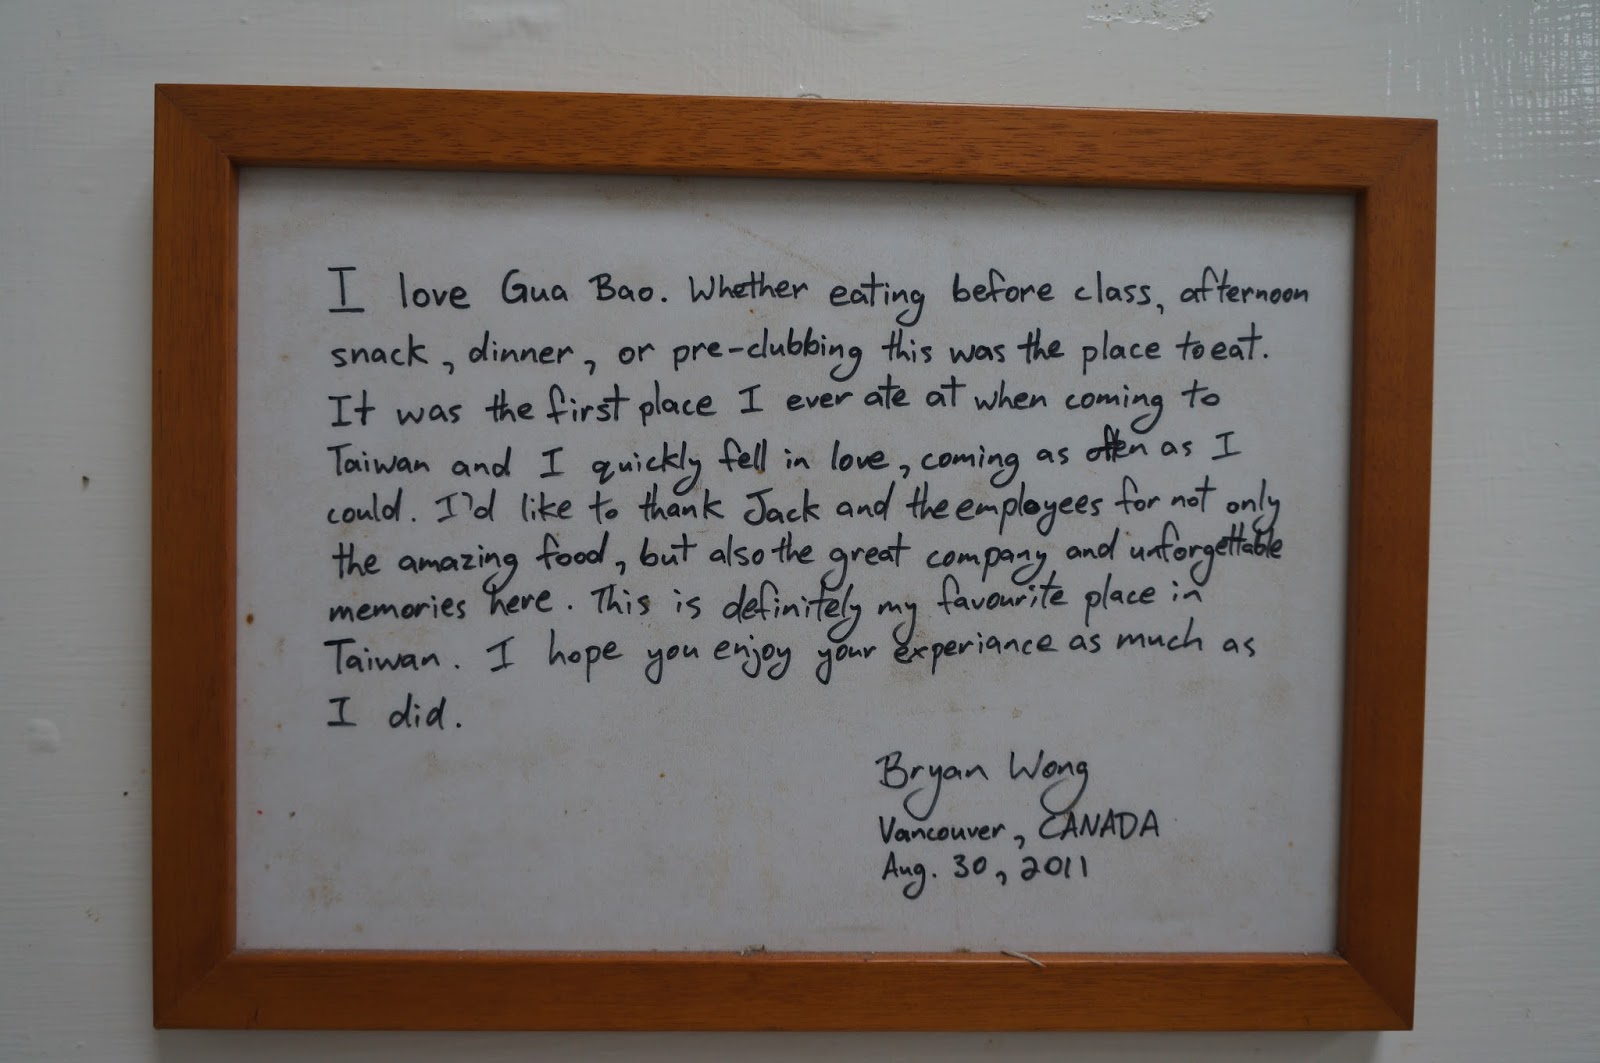 I love Gua Bao. Whether eating before class, afternoon
snack, dinner, or pre-clubbing this was the place to eat.
It was the first place I ever ate at when coming to
Taiwan and I quickly fell in love, coming as often as I
could. I'd like to thank Jack and the employees for not only
the amazing food, but also the great company and unforgettable
memories here. This is definitely my favourite place in
Taiwan. I hope you enjoy your experiance as much as
I did.
Bryan Wong
Vancouver, CANADA
Aug. 30, 2011